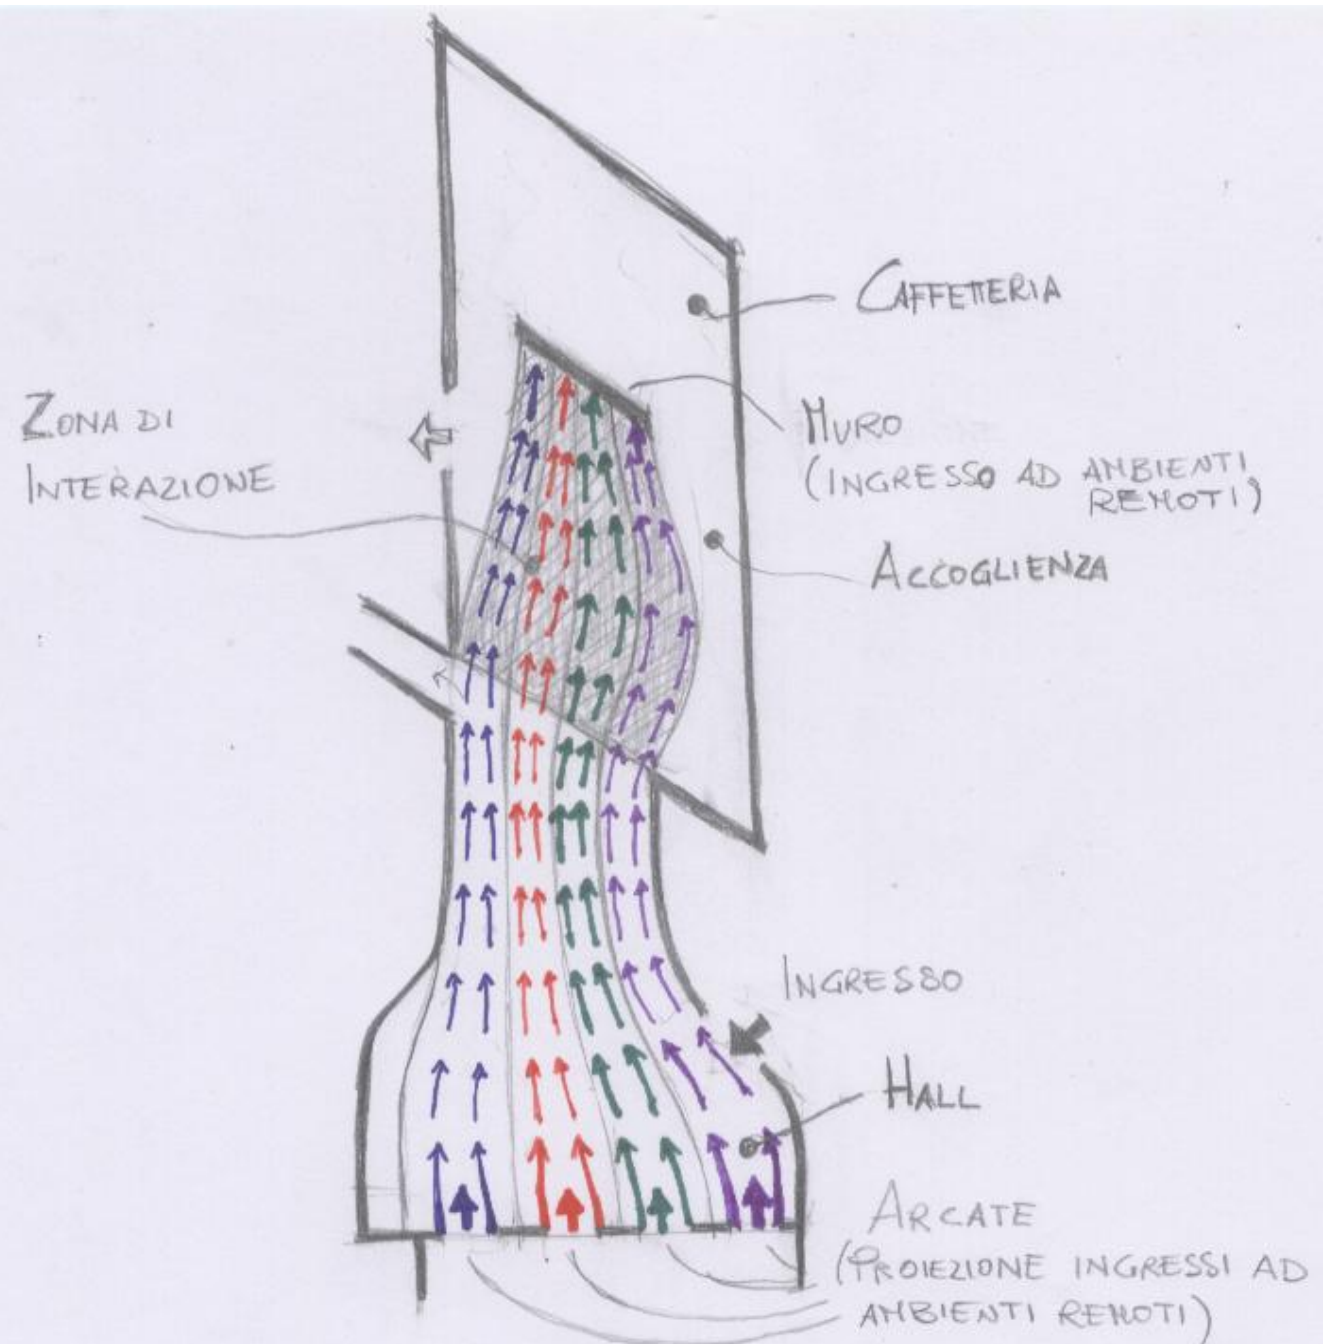 CAFFETTERIA
ZONA DI
INTERAZIONE
MURO
(INGRESSO AD AMBIENTI
REMOTI)
ACCOGLIENZA
INGRESSO
HALL
ARCATE
(PROIEZIONE INGRESSI AD
AMBIENTI REMOTI)